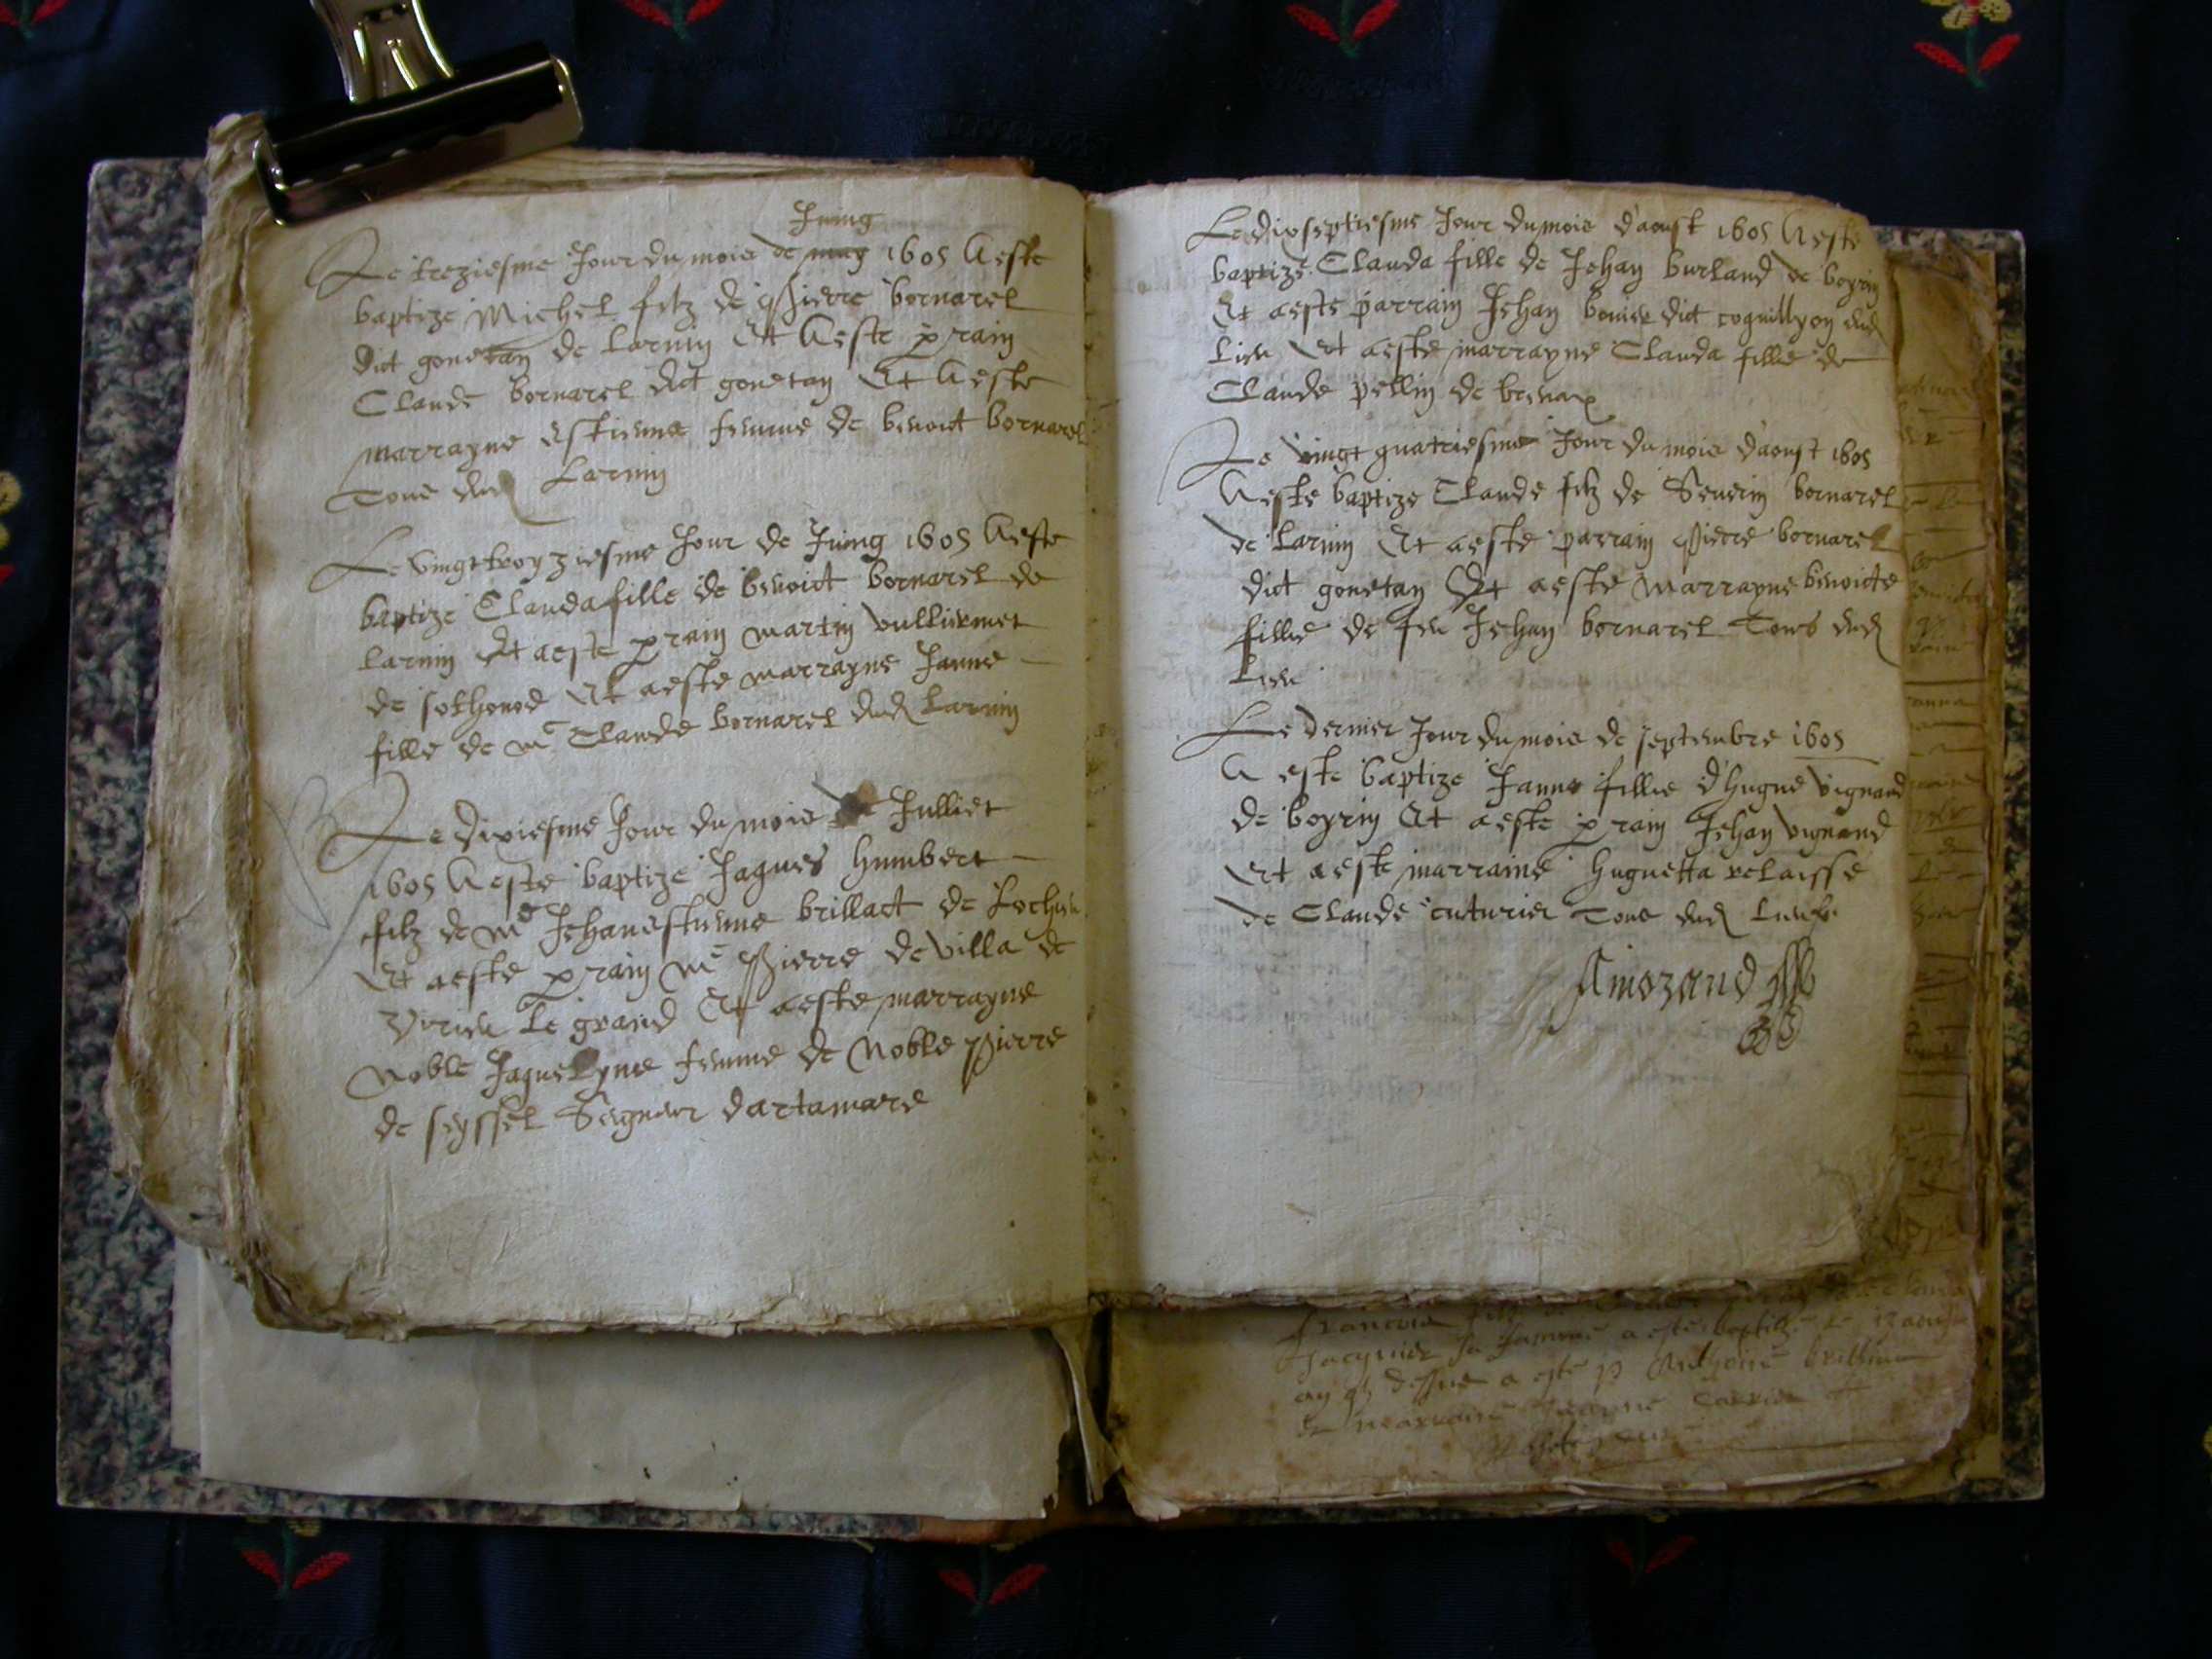 Juing
Le treziesme Jour du mois de may 1605 A este
baptize Michel filz de Pierre bornarel
dict gonetan de Larnin Et A este prain
Claude bornarel dict gonetan Et A este
marrayne Estienne femme de benoict bornarel
Tous dud Larnin
Le vingt troyziesme Jour de Juing 1605 A este
baptize Clauda fille de benoict bornarel de
Larnin Et a este prain martin vulliermet
de sothonod Et a este marrayne Janne
fille de me Claude bornarel dud Larnin
Le dixiesme Jour du mois de Julliet
1605 A este baptize Jaques humbert
filz de me Jehanestienne brillact de Lochieu
Et a este prain me Pierre de villa de
Virieu le grand Et a este marrayne
Noble Jaquelyne femme de Noble Pierre
de seyssel Seigneur dartamare
Le dixseptiesme Jour du mois d'aoust 1605 A este
baptize Clauda fille de Jehan burland de boyrin
Et a este parrain Jehan bouier dict coquillyon dud
Lieu Et a este marrayne Clauda fillie de
Claude pellin de brenax
Le vingt quatriesme Jour du mois d'aoust 1605
A este baptize Claude filz de Severin bornarel
de Larnin Et a este parrain Pierre bornarel
dict gonetan Et a este Marrayne benoicte
fillie de feu Jehan bornarel Tous dud
Lieu
Le dernier Jour du mois de septembre 1605
A este baptize Janne fillie d'hugue vignand
de boyrin Et a este prain Jehan vignand
Et a este marraine huguetta relaisse
de Claude cuturier Tous dud Lieu
Amozand
a este baptize le 12 aoust
a este p Anthoine
marraine